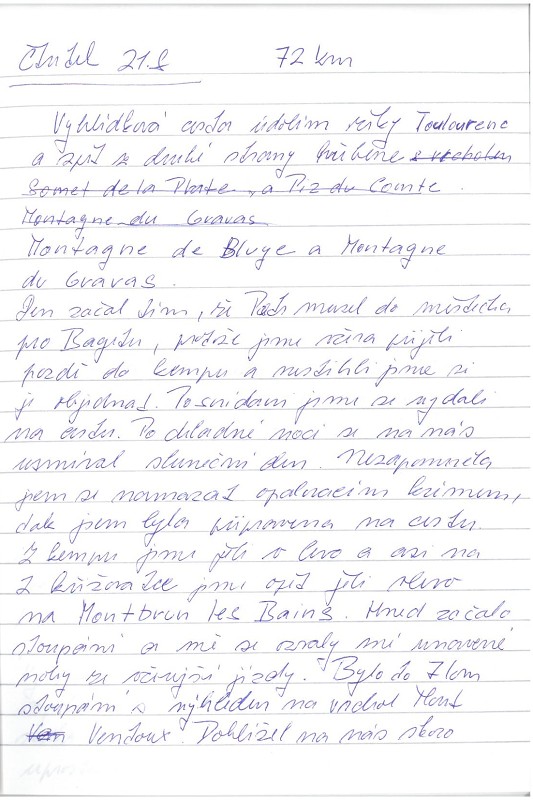 21.8 72 km
Vyhlídková cesta údolím řeky Toulourenc
a zpět z druhé strany hřebene s vrcholem
Somet de la Plate, a Piz du Comte.
Montagne du Gravas
Montagne de Bluye a Montagne
du Gravas.
Den začal tím, že Petr musel do městečka
pro Bagetu, protože jsme včera přijeli
pozdě do kempu a nestihli jsme si
je objednat. Po snídani jsme se vydali
na cestu. Po chladné noci se na nás
usmíval sluneční den. Nezapomněla
jsem se namazat opalovacím krémem,
tak jsem byla připravena na cestu.
Z kempu jsme jeli v levo a asi na
2 křižovatce jsme opět jeli vlevo
na Montbrun les Bains. Hned začalo
stoupání a mě se ozvaly mé unavené
nohy ze včerejší jízdy. Bylo to 7 km
stoupání s výhledem na vrchol Mont
Ven Ventoux. Dohlížel na nás skoro